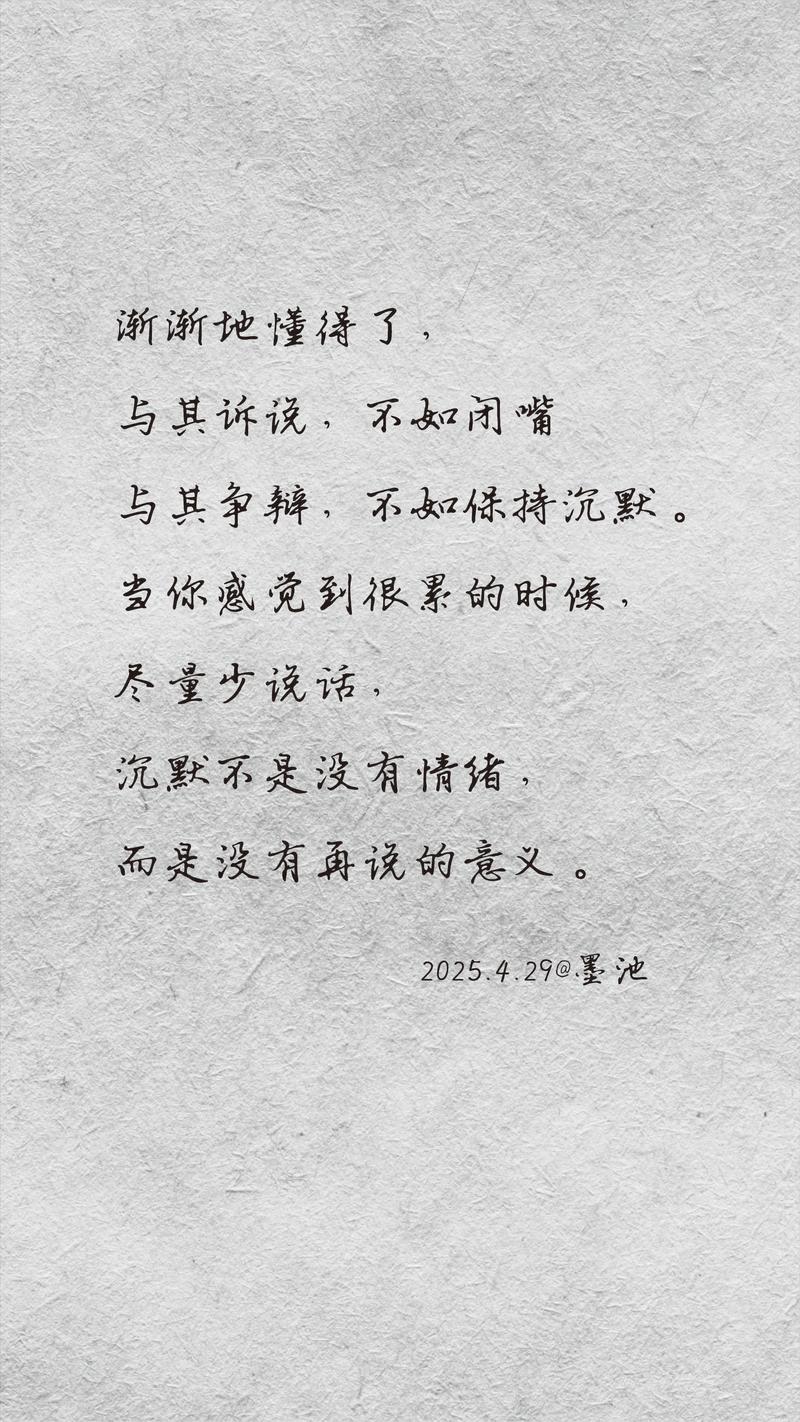 渐渐地懂得了，
与其诉说，不如闭嘴
与其争辩，不如保持沉默。
当你感觉到很累的时候，
尽量少说话，
沉默不是没有情绪，
而是没有再说的意义。
2025.4.29@墨池